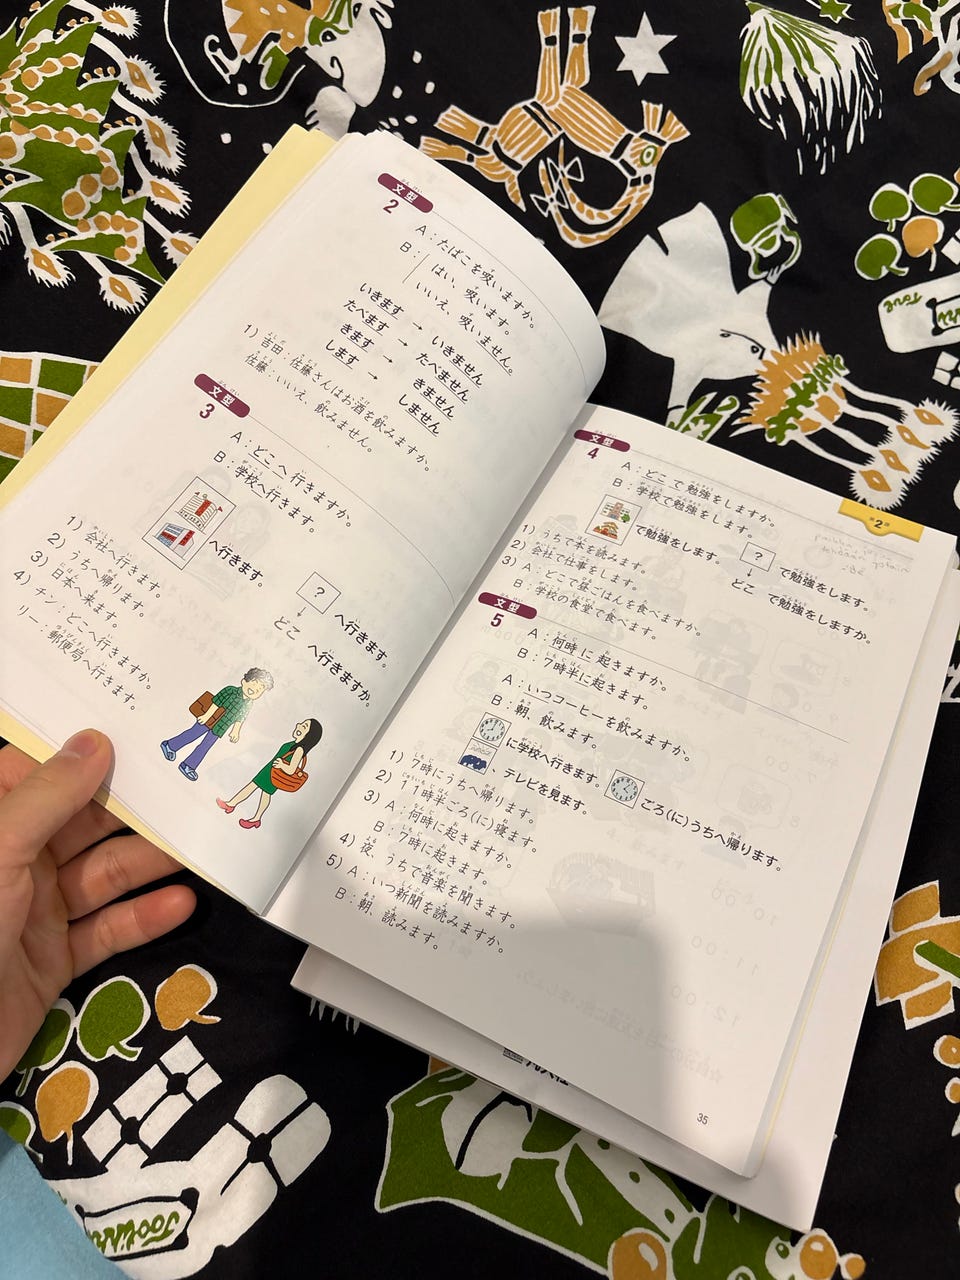 文型
2
A：たばこを吸いますか。
B：はい、吸います。
いいえ、吸いません。
いきます → いきません
たべます → たべません
きます → きません
します → しません
1) 吉田：佐藤さんはお酒を飲みますか。
佐藤：いいえ、飲みません。
文型
3
A：どこへ行きますか。
B：学校へ行きます。
へ行きます。
? へ行きます。
↓
どこ へ行きますか。
1) 会社へ行きます。
2) うちへ帰ります。
3) 日本へ来ます。
4) チン：どこへ行きますか。
リー：郵便局へ行きます。
文型
4
A：どこで勉強をしますか。
B：学校で勉強をします。
で勉強をします。
? で勉強をします。
↓
どこ で勉強をしますか。
1) うちで本を読みます。
2) 会社で仕事をします。
3) A：どこで昼ごはんを食べますか。
B：学校の食堂で食べます。
文型
5
A：何時に起きますか。
B：7時半に起きます。
A：いつコーヒーを飲みますか。
B：朝、飲みます。
に学校へ行きます。
ごろ(に)うちへ帰ります。
、テレビを見ます。
1) 7時にうちへ帰ります。
2) 11時半ごろ(に)寝ます。
3) A：何時に起きますか。
B：7時に起きます。
4) 夜、うちで音楽を聞きます。
5) A：いつ新聞を読みますか。
B：朝、読みます。
第2課
35